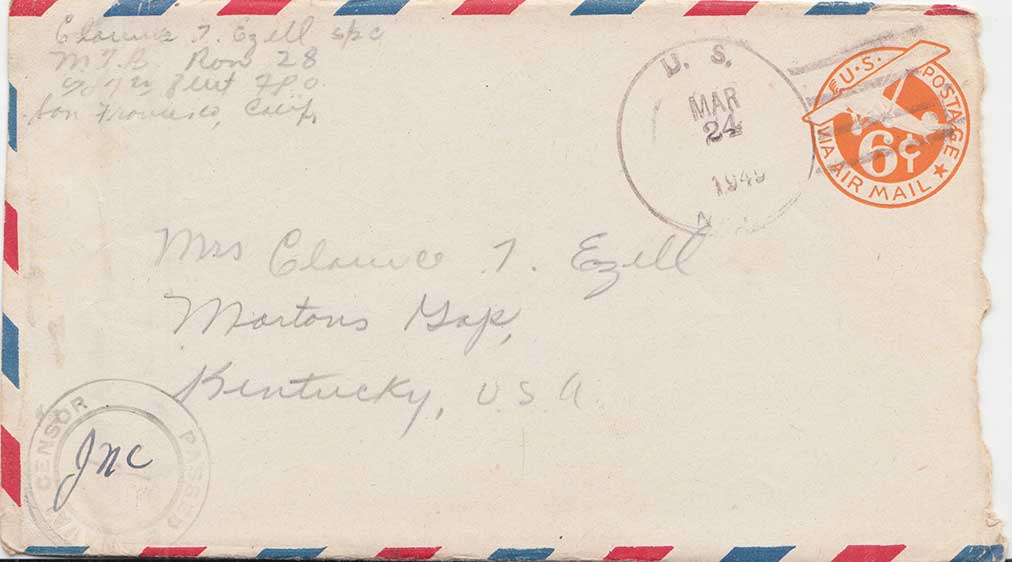 Clarence T. Ezell s/2c
M.T.B Ron 28
Fleet F.P.O.
San Francisco, Calif.
U. S.
MAR
24
1945
U.S. POSTAGE
6¢
VIA AIR MAIL
Mrs Clarence T. Ezell
Mortons Gap,
Kentucky, U.S.A.
PASSED
CENSOR
JNC